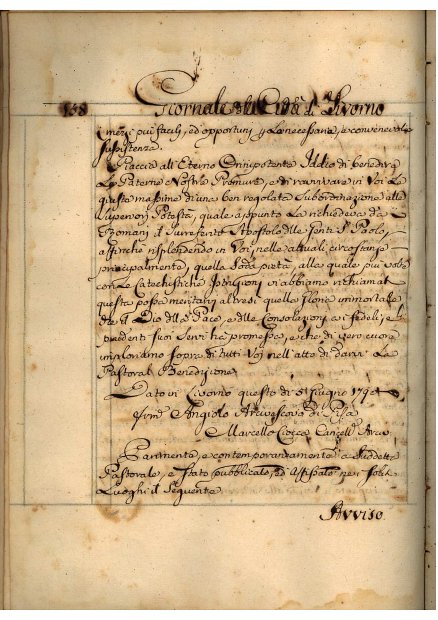 158 Giornale della Città di Livorno
i mezzi più facili, ed opportuni p la necessaria, e convenevole
sussistenza.
Piaccia all'Eterno Onnipotente Iddio di benedire
Le Paterne Nostre Premure, e di ravvivare in Voi Le
giuste massime di una ben regolata Subordinazione alle
Superiori Potestà, quale appunto La richiedeva da
Romani il Surreferito Apostolo delle Genti S. Paolo,
affinchè risplendendo in Voi, nelle attuali circostanze
principalmente, quella Soda pietà, alla quale più volte
con Le Catechistiche Istruzioni vi abbiamo richiamati
questa possa meritarvi altresì quella Gloria immortale
che il Dio della Pace, e delle Consolazioni ai fedeli, e
ubbidienti suoi Servi ha promessa, e che di vero cuore
imploriamo sopra di tutti Voi nell'atto di darvi La
Pastoral Benedizione.
Dato in Livorno questo dì 5 Giugno 1790
Firm. Angiolo Arcivescovo di Pisa
Marcello Ciocca Cancell. Arciv.
Parimente, e contemporaneamente a suddetta
Pastorale, è stato pubblicato, ed Affissato nei soliti
Luoghi il Seguente
Avviso